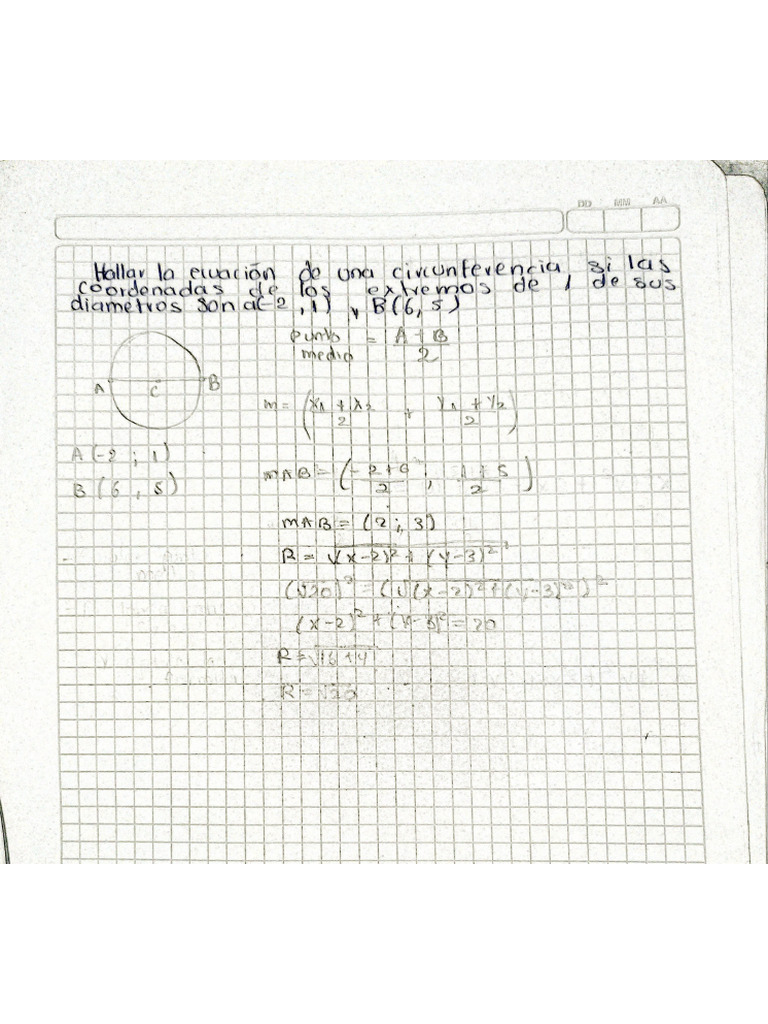 DD MM AA
Hallar la ecuación de una circunferencia, si las
coordenadas de los extremos de 1 de sus
diametros son a(-2, 1) y B(6, 5)
punto medio = A + B / 2
A C B
m = (x1 + x2 / 2 , y1 + y2 / 2)
A (-2 ; 1)
B (6 , 5)
mAB = (-2+6 / 2 ; 1+5 / 2)
mAB = (2 ; 3)
R = √(x-2)² + (y-3)²
(√20)² = (√(x-2)² + (y-3)²)²
(x-2)² + (y-3)² = 20
R = √16+4
R = √20